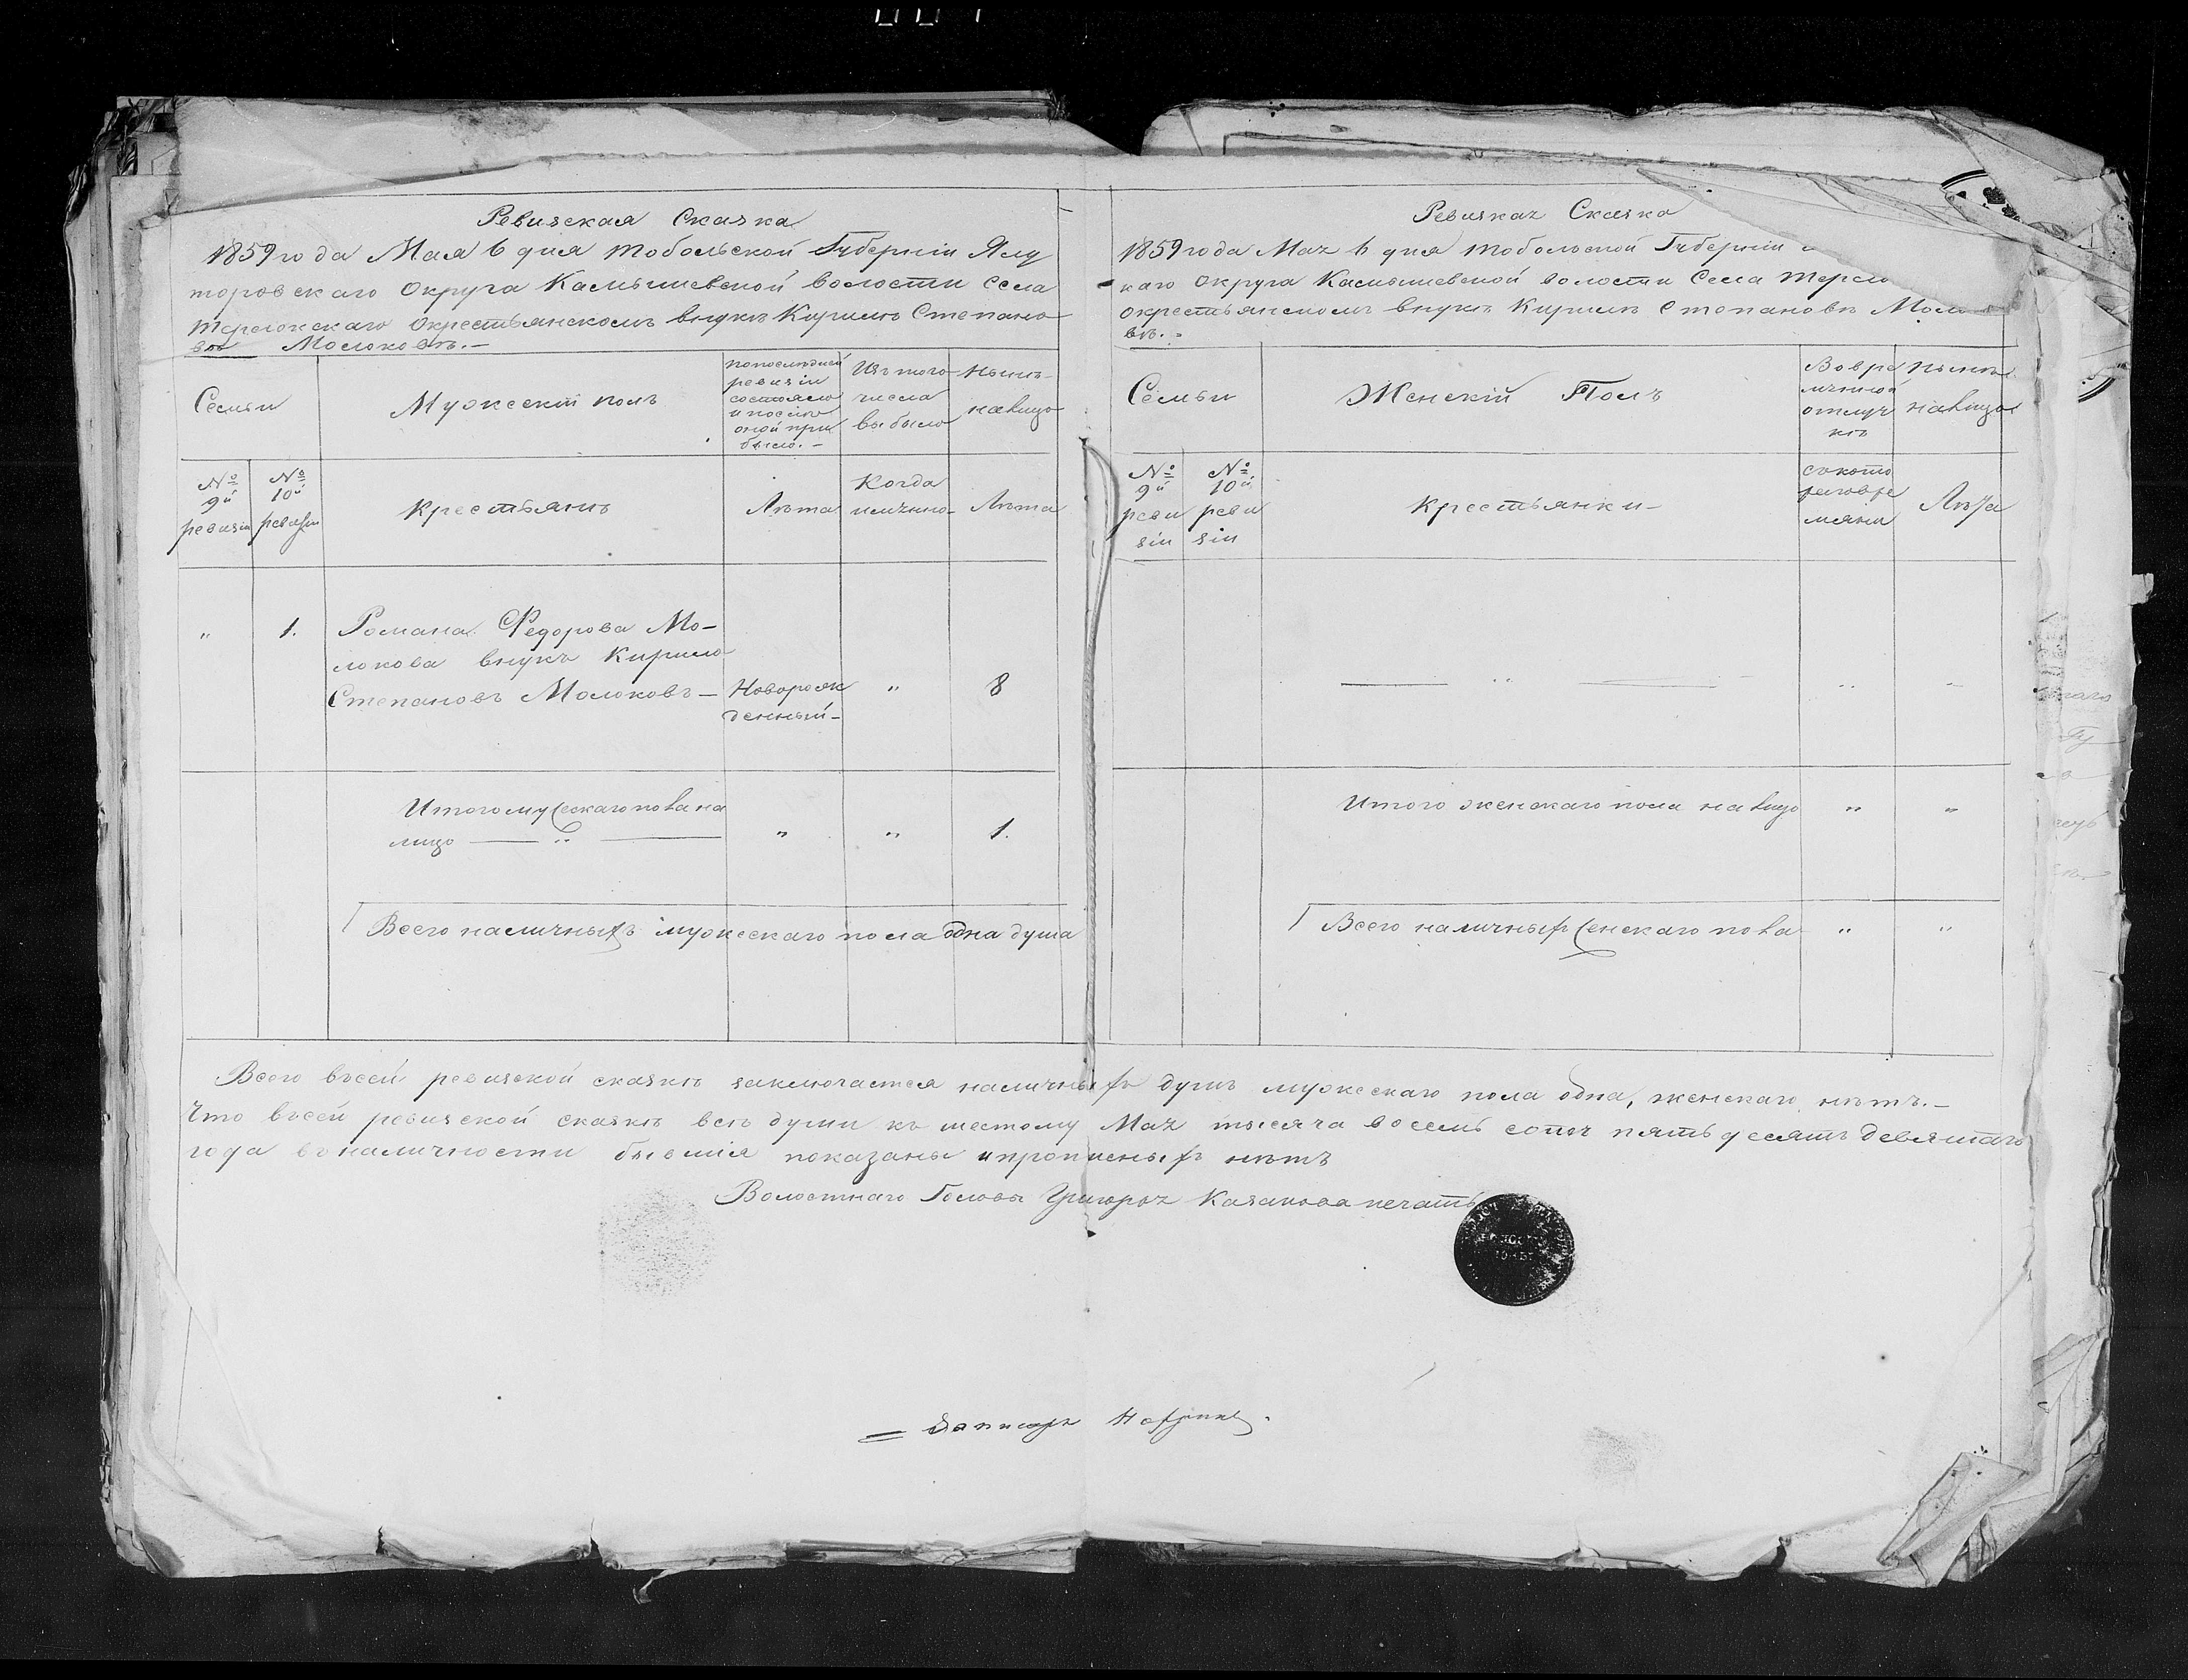 Ревизская Сказка
1859 года Мая 6 дня Тобольской Губернiи Ялу
торовскаго Округа Камышевской волости Села
Терсюкскаго Окрестьянскомъ внукѣ Кирилѣ Степано
вѣ Молоковѣ.—
Семьи
Мужескiй полъ
По последней
ревизiи
состояло
и после
оной при
было.—
Изъ того
числа
выбыло
Нынѣ
налицо
№ 9й ревизiи
№ 10й ревизiи
Крестьянъ
Лѣта
Когда
имянно
Лѣта
" 1. Романа Федорова Мо-
локова внукъ Кирило
Степановъ Молоковъ — Новорож " 8
денный—
Итого мужескаго пола на
лицо — " — " " 1.
Всего наличныхъ мужескаго пола одна душа
Ревизкая Сказка
1859 года Мая 6 дня Тобольской Губернiи
каго Округа Камышевской волости Села
окрестьянскомъ внукѣ Кирилѣ Степановѣ Моло
вѣ.—
Семьи
Женскiй Полъ
Во вре
мянной
отлуч
кѣ
Нынѣ
налицо
№ 9й реви зiи
№ 10й реви зiи
Крестьянки—
съ кото
раго вре
мяни
Лѣта
— " — " "
Итого женскаго пола на лицо " "
Всего наличныхъ женскаго пола " "
Всего въ сей ревизской сказкѣ заключается наличныхъ душъ мужескаго пола одна, женскаго нѣтъ.—
Что въ сей ревизской сказкѣ всѣ души къ шестому Мая тысяча восемь сотъ пятьдесятъ девятаго
года въ наличности бывшiя показаны и прописныхъ нѣтъ
Волостнаго Головы Григорья Казакова печать